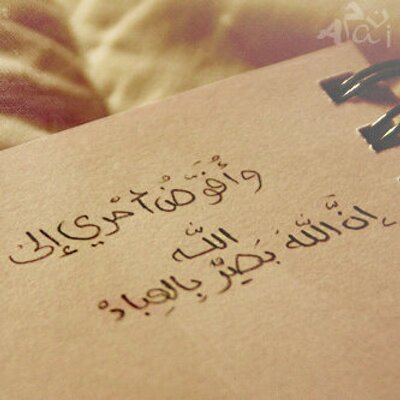 وَأُفَوِّضُ أمْرِي إِلى
اللّه
إِنَّ اللَّهَ بَصِيْرٌ بِالعِبادْ